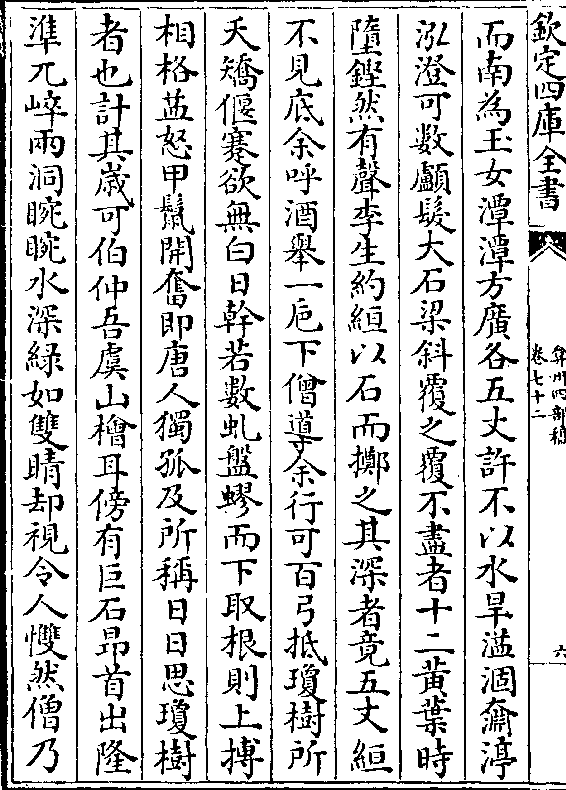 欽定四庫全書
弇州四部稿
卷七十二
六
而南為玉女潭潭方廣各五丈許不以水旱溢涸奫渟
泓澄可數顱髮大石梁斜覆之覆不盡者十二黃葉時
墮鏗然有聲李生約絙以石而擲之其深者竟五丈絙
不見底余呼酒舉一巵下僧導余行可百弓抵瓊樹所
夭矯偃蹇欲無白日幹若數虬盤蟉而下取根則上摶
相格葢怒甲鬛開奮即唐人獨孤及所稱日日思瓊樹
者也計其歲可伯仲吾虞山檜耳傍有巨石昂首出隆
準兀崪兩洞睕睕水深綠如雙睛却視令人戄然僧乃